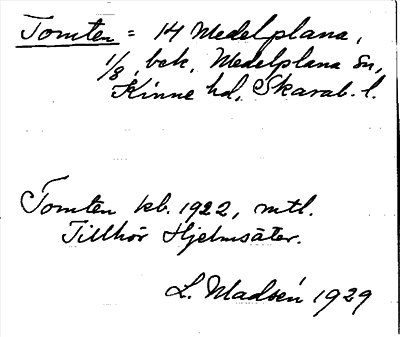 Tomten = 14 Medelplana,
1/8, bek. Medelplana Sn,
Kinne hd, Skarab. l.
Tomten kb. 1922, mtl.
Tillhör Hjelmsäter.
L. Madsén 1929